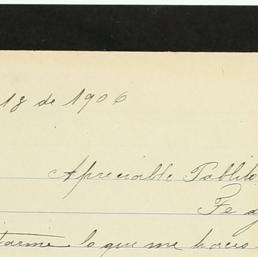 18 de 1906
Apreciable Pablito
Te a
tarme lo que me haces